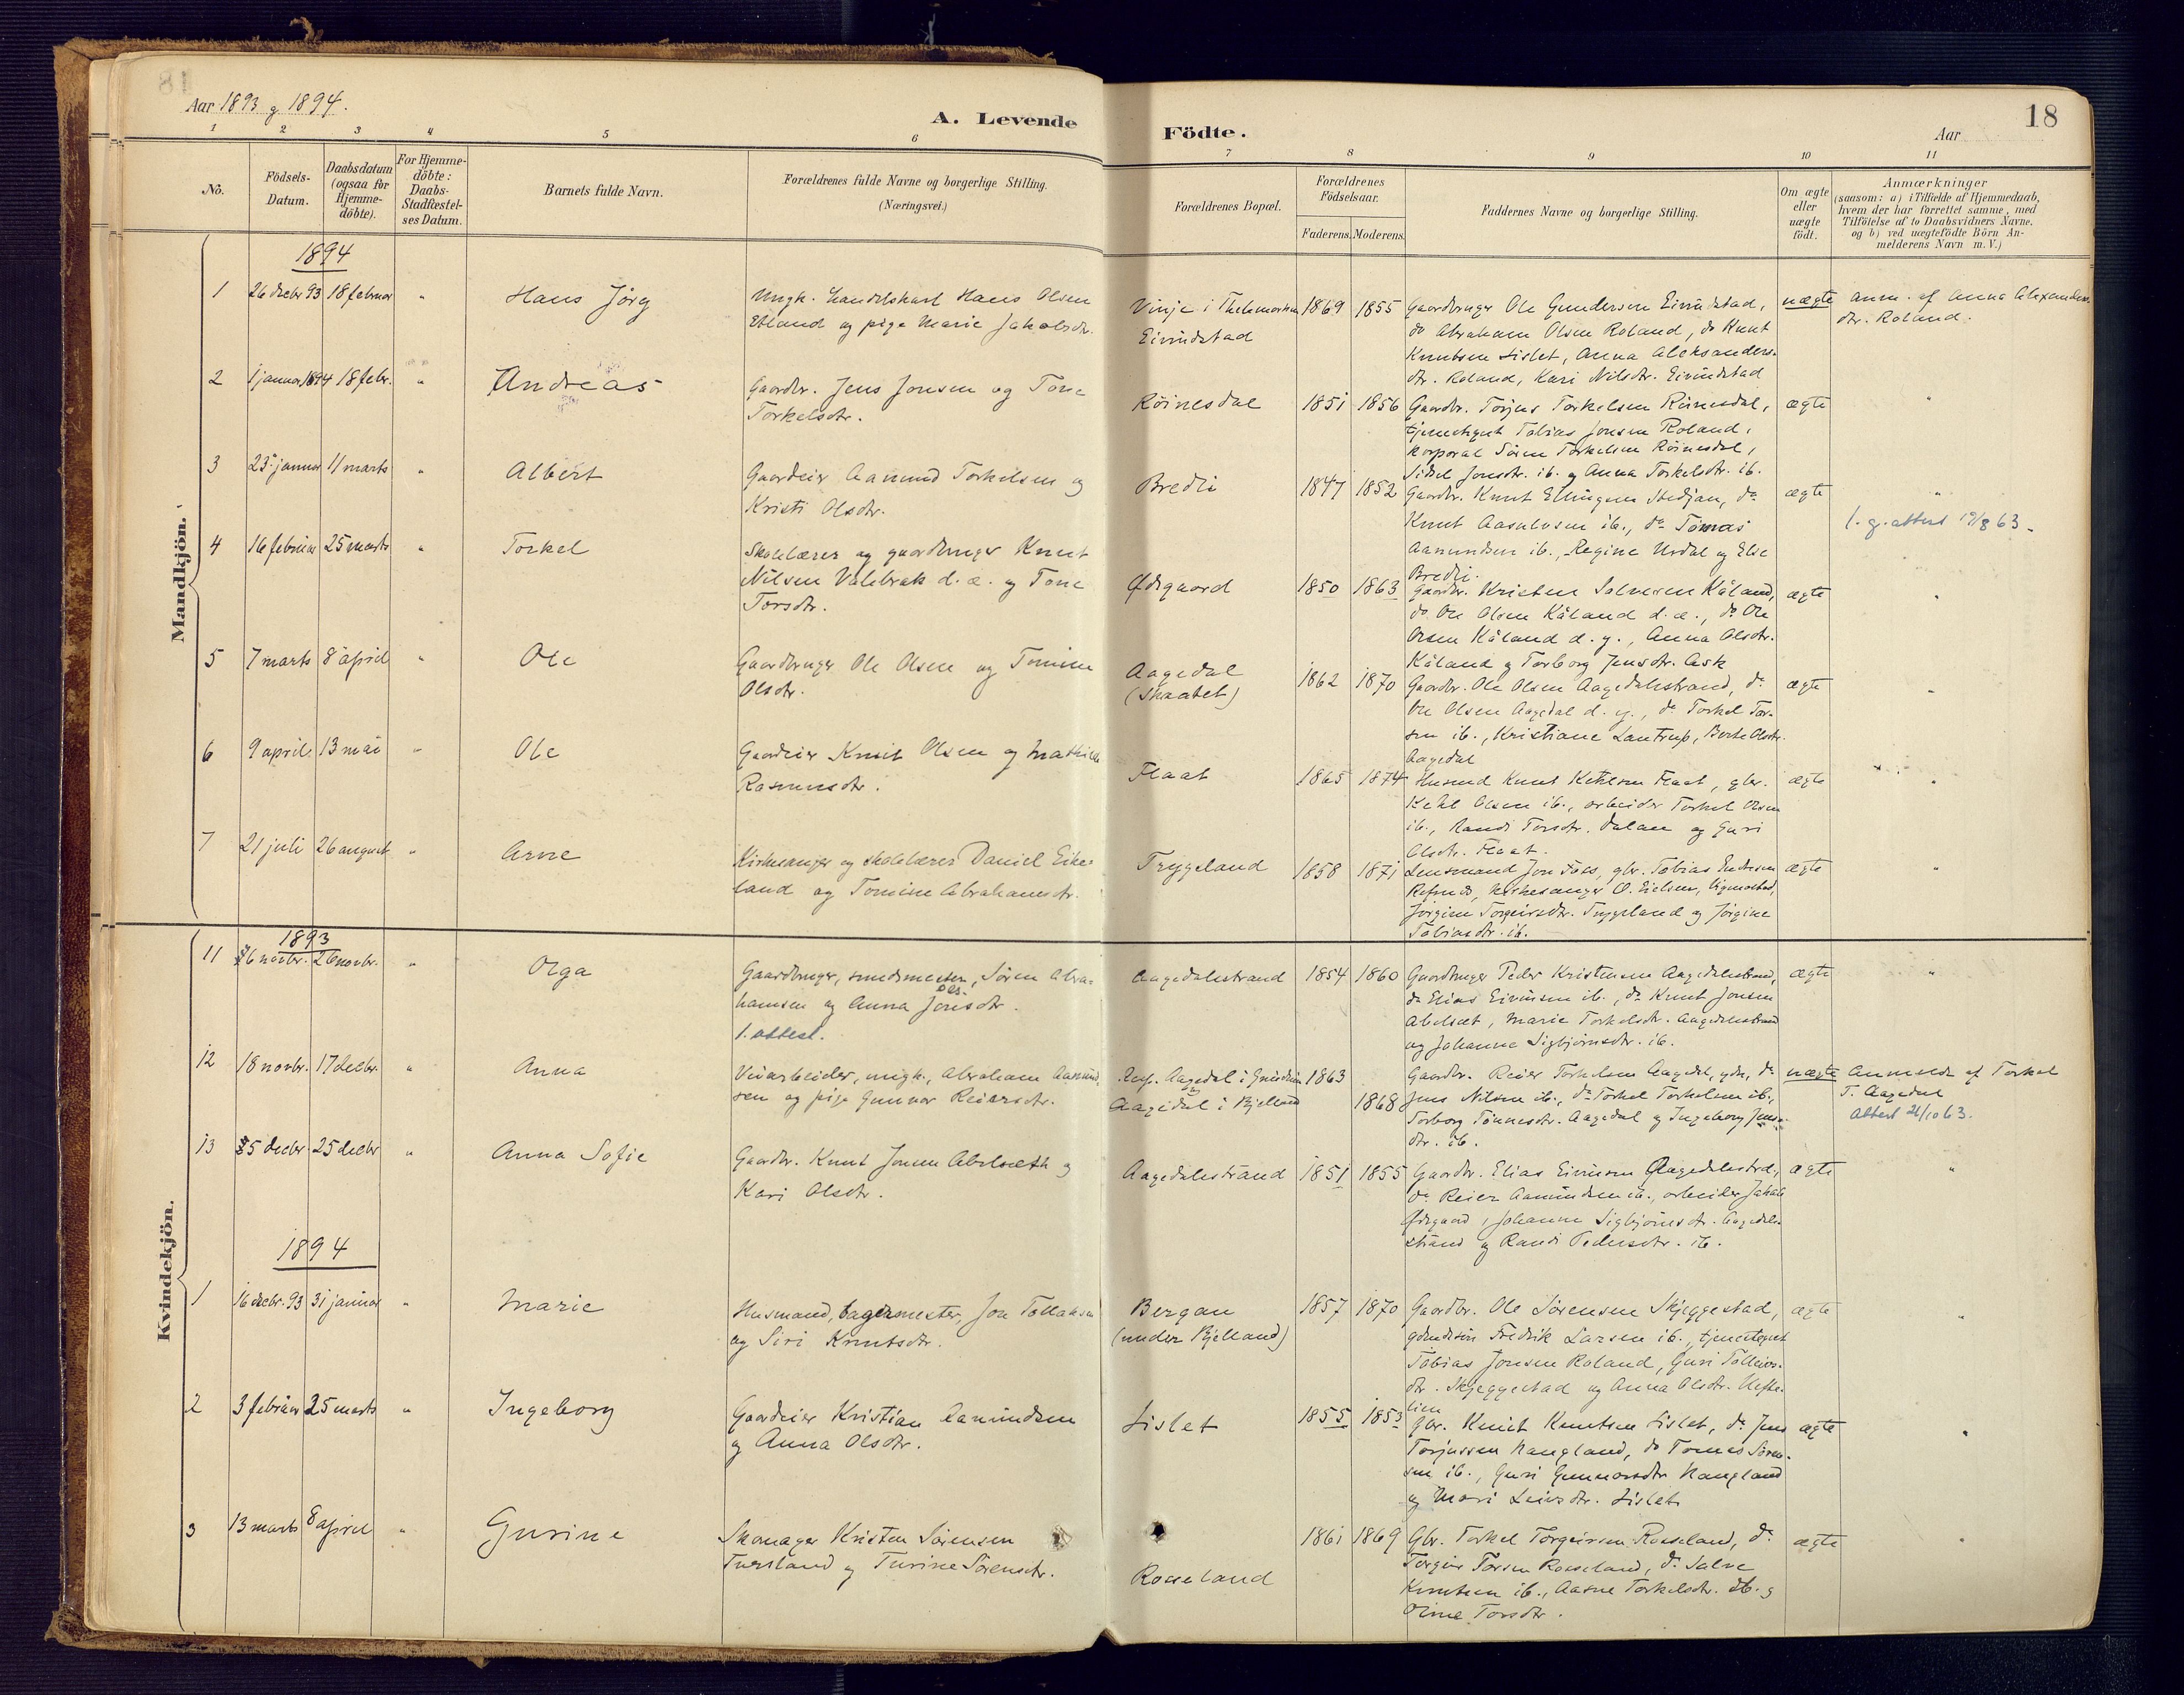 18
Aar 1893 g 1894.
A. Levende
Födte.
Aar
1
2
3
4
5
6
7
8
9
10
11
No.
Födsels-
Datum.
Daabsdatum
(ogsaa for
Hjemme-
döbte).
For Hjemme-
döbte:
Daabs-
Stadfæstel-
ses Datum.
Barnets fulde Navn.
Forældrenes fulde Navne og borgerlige Stilling.
(Næringsvei.)
Forældrenes Bopæl.
Forældrenes
Födselsaar.
Faderens.
Moderens.
Faddernes Navne og borgerlige Stilling.
Om ægte
eller
uægte
födt.
Anmærkninger
(saasom: a) i Tilfælde af Hjemmedaab,
hvem der har forrettet samme, med
Tilföielse af to Daabsvidners Navne.
og b) ved uægtefödte Börn An-
melderens Navn m. V.)
Mandkjön.
1894
1 26 decbr 93 18 februar " Hans Jörg
Ungk. handelskarl Hans Olsen
Etland og pige Marie Jakobsdtr.
Vinje i Thelemarken
Eivindstad
1869 1855
Gaardbruger Ole Gundersen Eivindstad,
do Abraham Olsen Roland, do Knut
Knutsen Lislet, Anna Aleksanders-
dtr. Roland, Kari Nilsdtr. Eivindstad
uægte
anm. af Anna Alexanders-
dtr. Roland.
2 1 januar 1894 18 febr. " Andreas
Gaardbr. Jens Jonsen og Tone
Torkelsdtr.
Röinesdal
1851 1856
Gaardbr. Torjus Torkelsen Röinesdal,
tjenestegut Tobias Jonsen Roland,
korporal Sören Torkelsen Röinesdal,
Sidsel Jonsdtr. ib. g Anna Torkelsdtr. ib.
ægte "
3 23 januar 11 marts " Albert
Gaardeier Aanund Torkelsen og
Kristi Olsdtr.
Bredli
1847 1852
Gaardbr. Knut Ellingsen Stedjan, do
Knut Aasulvsen ib., do Tomas
Aanundsen ib., Regine Urdal og Else
Bredli.
ægte "
l. g. attest 19/8 63.
4 16 februar 25 marts " Torkel
Skolelærer og gaardbruger Knut
Nilsen Valebrak d. æ. og Tone
Torsdtr.
Ødegaard
1850 1863
Gaardbr. Kristen Salvesen Kåland,
do Ole Olsen Kåland d. æ., do Ole
Olsen Kåland d. y., Anna Olsdtr.
Kåland g Torborg Jensdtr. Ask
ægte "
5 7 marts 8 april " Ole
Gaardbruger Ole Olsen og Tomine
Olsdtr.
Aagedal
(Skaatet)
1862 1870
Gaardbr. Ole Olsen Aagedalsstrand, do
Ole Olsen Aagedal d. y., do Torkel Tor-
sen ib., Kristiane Lantrup, Berte Olsdtr.
Aagedal
ægte "
6 9 april 13 mai " Ole
Gaardeier Knut Olsen og Mathilde
Rasmusdtr.
Flaat
1865 1874
Husmd Knut Ketilsen Flaat, gbr.
Ketil Olsen ib., arbeider Torkel Olsen
ib., Randi Torsdtr. Dalane og Guri
Olsdtr. Flaat.
ægte "
7 21 juli 26 august " Arne
Kirkesanger og skolelærer Daniel Eike-
land og Tomine Abrahamsdtr.
Trygsland
1858 1871
Lensmand Jon Foss, gbr. Tobias Endresen
Refsnes, kirkesanger O. Eielsen, Vigmostad,
Jörgine Torgeirsdtr. Trygsland g Jörgine
Tobiasdtr. ib.
ægte "
Kvindekjön.
1893
11 6 novbr. 26 novbr. " Olga
Gaardbruger, smedmester, Sören Abra-
hamsen og Anna Jonsdtr.
Ols-
1. attest.
Aagedalsstrand
1854 1860
Gaardbruger Peder Kristensen Aagedalsstrand,
do Elias Eivinsen ib., do Knut Jonsen
Abelsæt, Marie Torkelsdtr. Aagedalsstrand
og Johanne Sigbjörnsdtr. ib.
ægte "
12 18 novbr. 17 decbr. " Anna
Veiarbeider, ungk., Abraham Aanund-
sen og pige Gunvor Reiersdtr.
Resp. Aagedal i Grindeim
og
Aagedal i Bjelland
1863
1868
Gaardbr. Reier Torkelsen Aagedal, gdn, do
Jens Nilsen ib., do Torkel Torkelsen ib.,
Torborg Tönnesdtr. Aagedal g Ingeborg Jens-
dtr. ib.
uægte
Anmeldt af Torkel
T. Aagedal
Attest 21/10 63.
13 5 decbr 25 decbr " Anna Sofie
Gaardbr. Knut Jonsen Abelsæth g
Kari Olsdtr.
Aagedalsstrand
1851 1855
Gaardbr. Elias Eivinsen Aagedalsstrd.,
do Reier Aanundsen ib., arbeider Jakob
Ødegaard, Johanne Sigbjörnsdtr. Aagedals-
strand g Randi Pedersdtr. ib.
ægte "
1894
1 16 decbr. 93 31 januar " Marie
Husmand, bagermester, Jon Tollaksen
og Siri Knutsdtr.
Bergan
(under Bjelland)
1857 1870
Gaardbr. Ole Sörensen Skjeggestad,
gdmdsön Fredrik Larsen ib., tjenestegut
Tobias Jonsen Roland, Guri Tolleivs-
dtr. Skjeggestad og Anna Olsdtr. Hefte-
lien
ægte "
2 3 februar 25 marts " Ingeborg
Gaardeier Kristian Aanundsen
g Anna Olsdtr.
Lislet
1855 1853
Gbr. Knut Knutsen Lislet, do Jens
Torjussen Haugland, do Tomas Sören-
sen ib., Guri Gunnarsdtr Haugland
g Mari Leivsdtr. Lislet
ægte "
3 13 marts 8 april " Gurine
Skomager Kristen Sörensen
Tversland g Turine Sörensdtr.
Rosseland
1861 1869
Gbr. Torkel Torgeirsen Rosseland, do
Torgeir Torsen Rosseland, do Salve
Knutsen ib., Aasne Torkelsdtr. ib. g
Oline Torsdtr.
ægte "